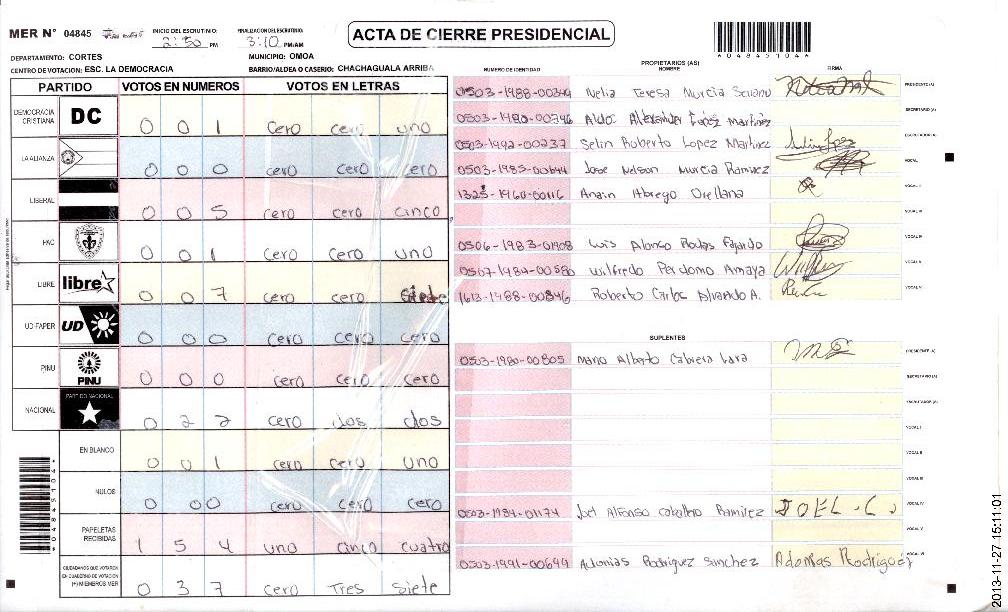 MER N° 04845
INICIO DEL ESCRUTINIO: 2:50 PM
FINALIZACION DEL ESCRUTINIO: 3:10 PM:AM
ACTA DE CIERRE PRESIDENCIAL
*04845104*
DEPARTAMENTO: CORTES
MUNICIPIO: OMOA
CENTRO DE VOTACION: ESC. LA DEMOCRACIA
BARRIO/ALDEA O CASERIO: CHACHAGUALA ARRIBA
PARTIDO VOTOS EN NUMEROS VOTOS EN LETRAS
DEMOCRACIA CRISTIANA DC 0 0 1 cero cero uno
LA ALIANZA 0 0 0 cero cero cero
LIBERAL 0 0 5 cero cero cinco
PAC 0 0 1 cero cero uno
LIBRE libre 0 0 7 cero cero siete
UD-FAPER UD 0 0 0 cero cero cero
PINU PINU 0 0 0 cero cero cero
NACIONAL PARTIDO NACIONAL 0 2 2 cero dos dos
EN BLANCO 0 0 1 cero cero uno
NULOS 0 0 0 cero cero cero
PAPELETAS RECIBIDAS 1 5 4 uno cinco cuatro
CIUDADANOS QUE VOTARON EN CUADERNO DE VOTACION (+) MIEMBROS MER 0 3 7 cero Tres siete
*04845104*
PROPIETARIOS (AS)
NUMERO DE IDENTIDAD NOMBRE FIRMA
0503-1988-00349 Nelia Teresa Murcia Seriano PRESIDENTE (A)
0503-1980-00746 Aldo Alexander Lopez Martinez SECRETARIO (A)
0503-1992-00237 Selin Roberto Lopez Martinez ESCRUTADOR (A)
0503-1985-00644 Jose Nelson Murcia Ramirez VOCAL I
1325-1960-00116 Anain Abrego Orellana VOCAL II
VOCAL III
0506-1983-01908 Luis Alonso Rodas Fajardo VOCAL IV
0507-1984-00580 Wilfredo Perdomo Amaya VOCAL V
1613-1988-00846 Roberto Carlos Alvarado A. VOCAL VI
SUPLENTES
0503-1980-00805 Mario Alberto Cabrera Lara PRESIDENTE (A)
SECRETARIO (A)
ESCRUTADOR (A)
VOCAL I
VOCAL II
VOCAL III
0503-1984-01174 Joel Alfonso Caballero Ramirez JOEL.C VOCAL IV
VOCAL V
0503-1991-00699 Adonias Rodriguez Sanchez Adonias Rodriguez VOCAL VI
2013-11-27 15:11:01